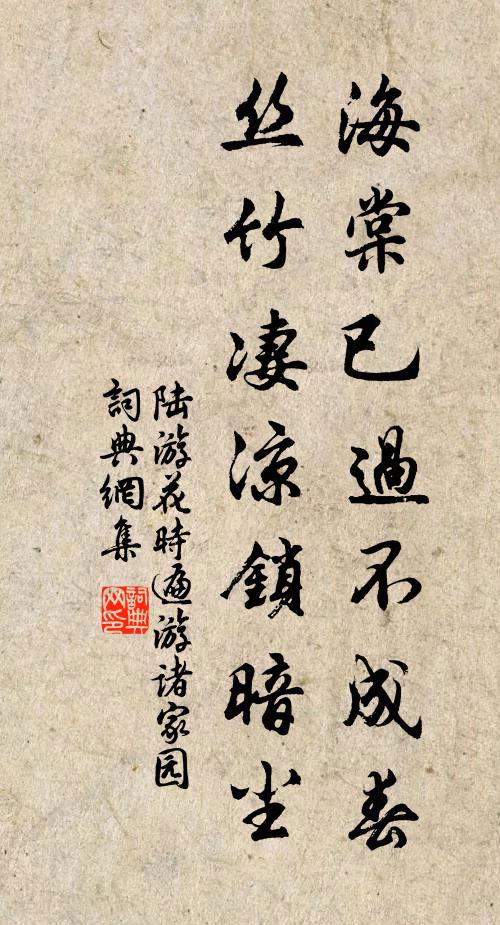 海棠已過不成春
丝竹凄凉鎖暗尘
陆游花時遍游诸家园
詞典網集
詞典网印